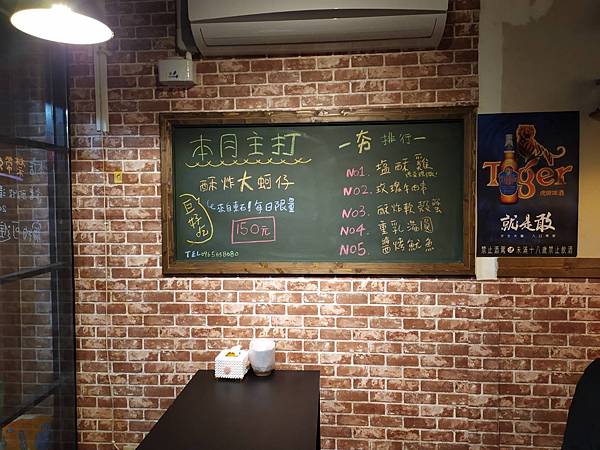 本月主打
酥炸大蚵仔
巨好吃
(七來自東石!每日限量
150元
TEL
一夯 排行一
NO1. 塩酥雞
NO2. 玫瑰牛肉串
NO3. 酥炸軟殼蟹
NO4. 重乳海圓
NO5. 醬烤魷魚
Tiger
虎牌啤酒
就是敢
禁止酒駕 未滿十八歲禁止飲酒